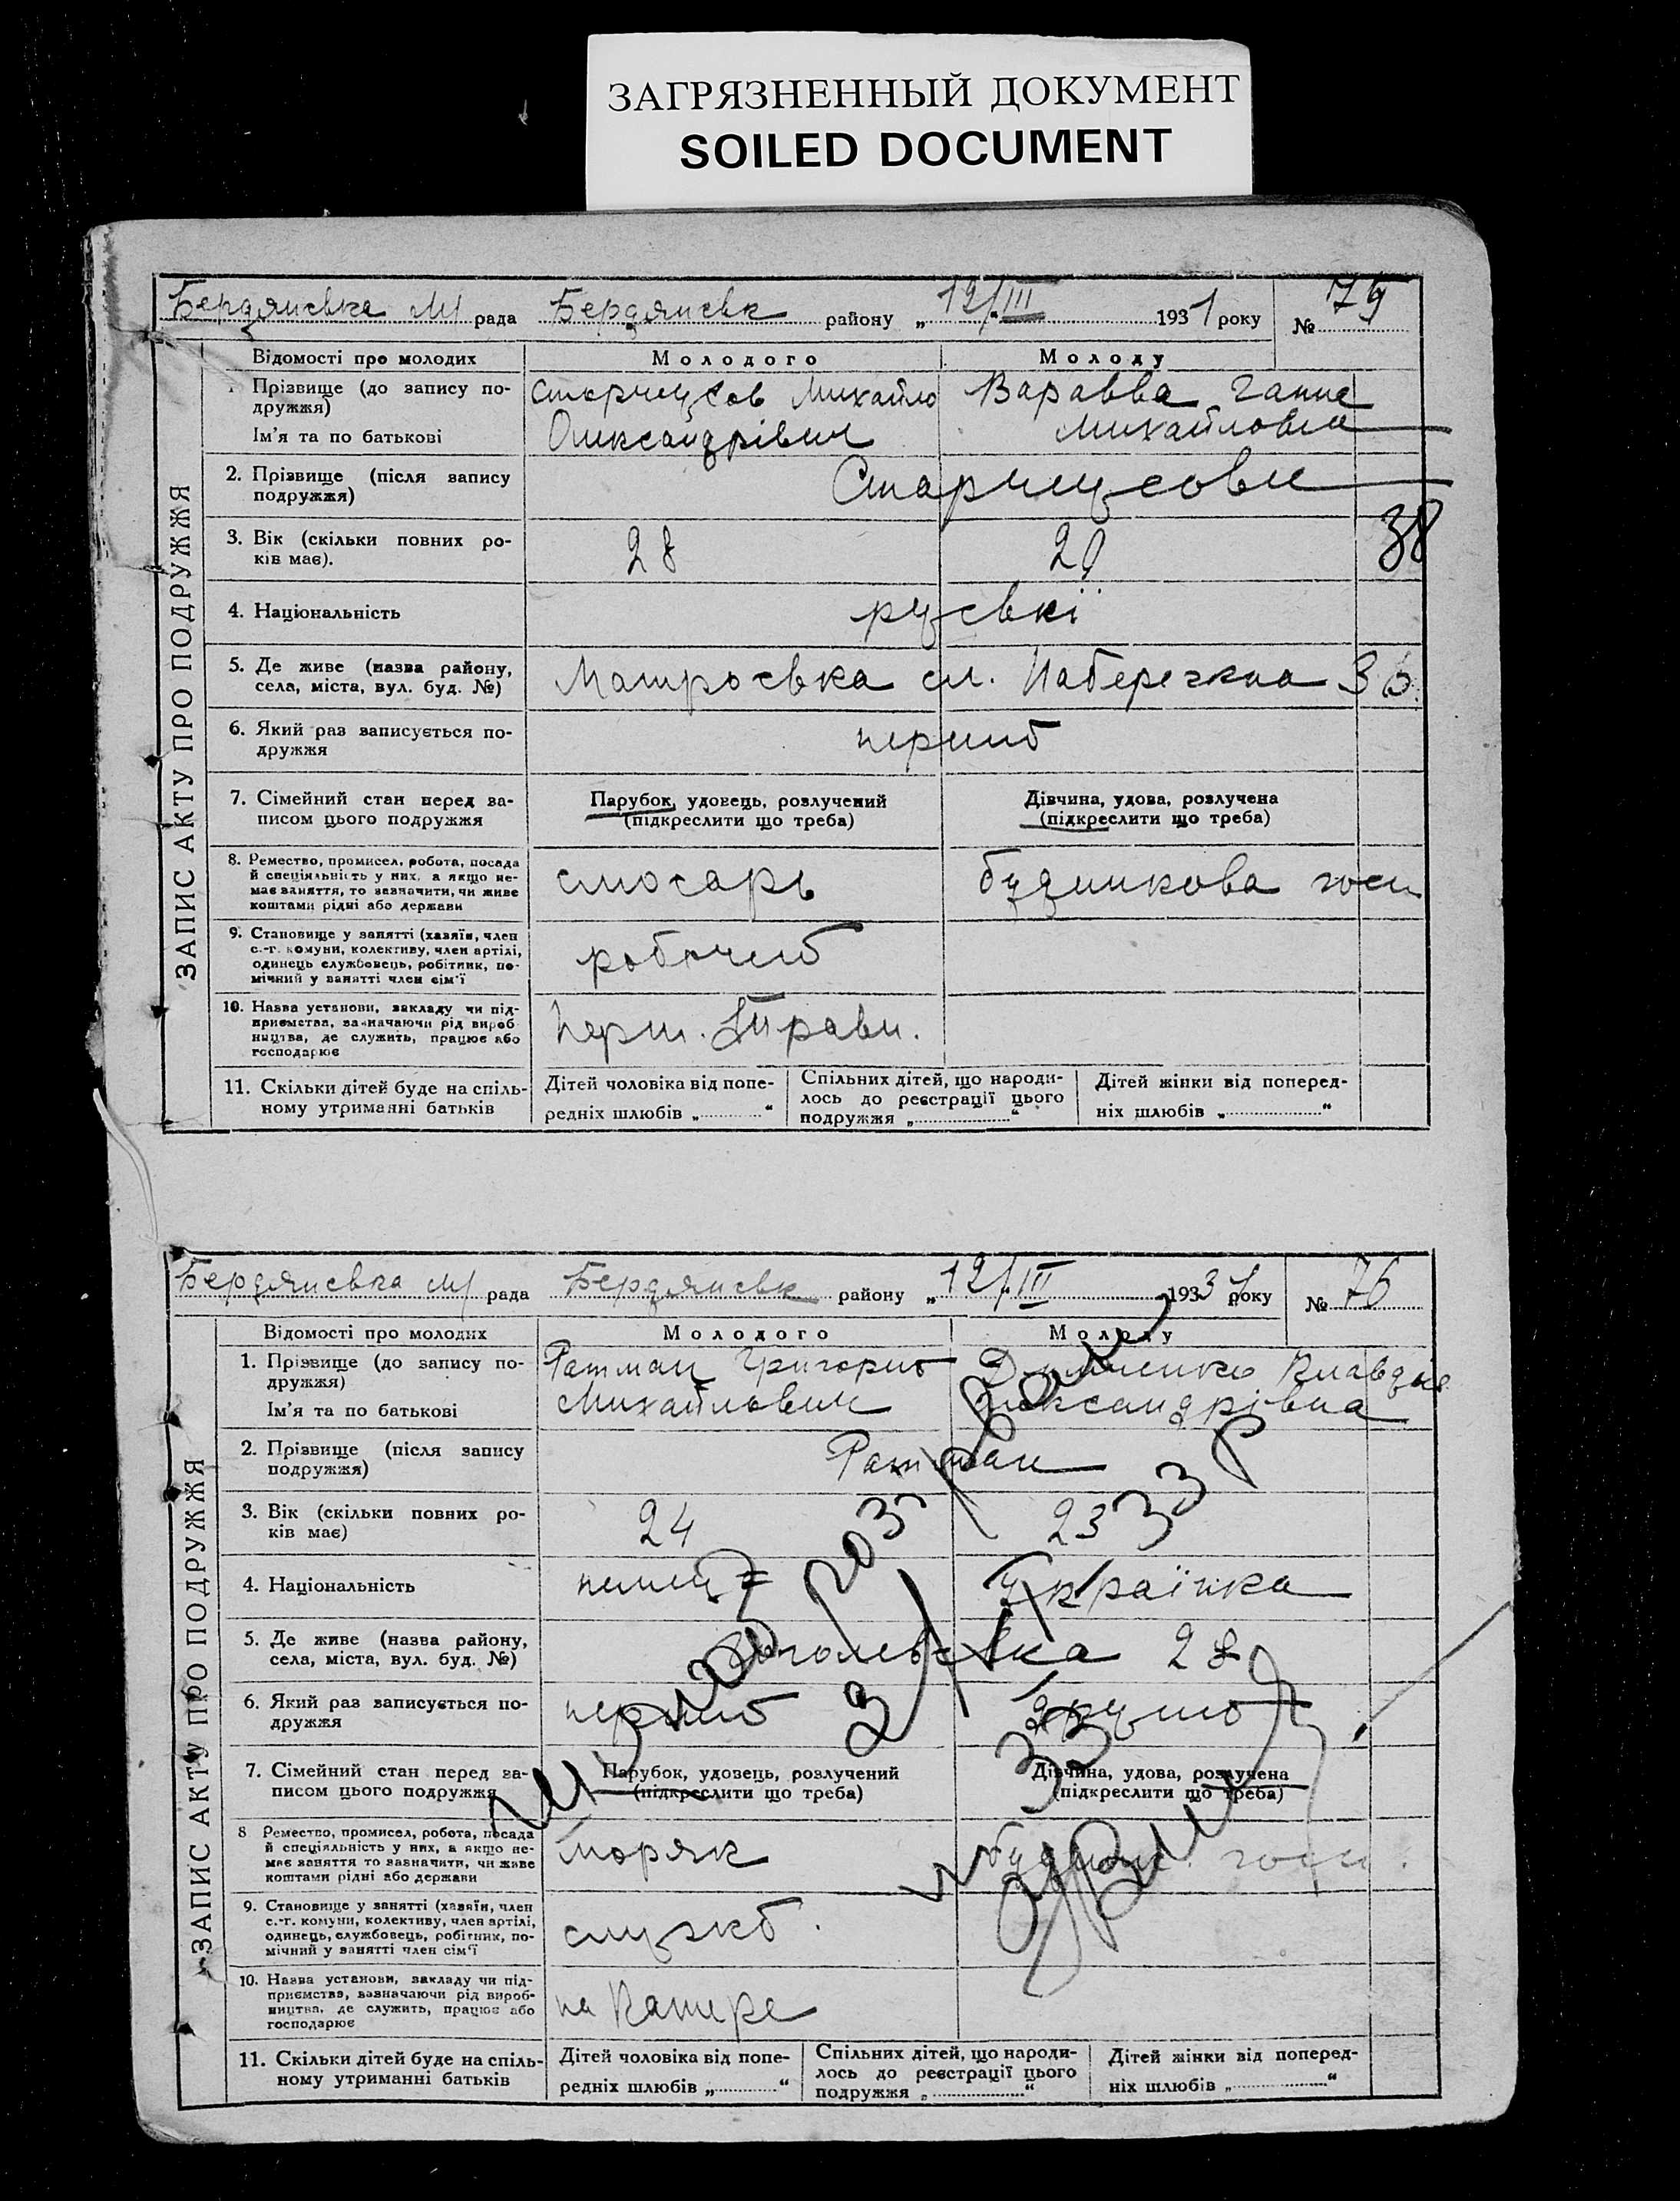 ЗАГРЯЗНЕННЫЙ ДОКУМЕНТ
SOILED DOCUMENT
Бердянська М/ рада Бердянськ району „12/III 1931 року № 75
ЗАПИС АКТУ ПРО ПОДРУЖЖЯ
Відомості про молодих Молодого Молоду
Прізвище (до запису по-
дружжя)
Ім'я та по батькові
Михайло
Олександрівич
Варавва Ганна
Михайловна
2. Прізвище (після запису
подружжя)
3. Вік (скільки повних ро-
ків має).
28 20 38
4. Національність
руські
5. Де живе (назва району,
села, міста, вул. буд. №)
Матросвка сл. Набережна 36
6. Який раз записується по-
дружжя
перший
7. Сімейний стан перед за-
писом цього подружжя
Парубок, удовець, розлучений
(підкреслити що треба)
Дівчина, удова, розлучена
(підкреслити що треба)
8. Ремество, промисел, робота, посада
й спеціяльність у них, а якщо не-
має заняття, то зазначити, чи живе
коштами рідні або держави
слюсарь будинкова госп
9. Становище у занятті (хазяїн, член
с.-г. комуни, колективу, член артілі,
одинець службовець, робітник, по-
мічний у занятті член сім'ї
робочий
10. Назва установи, закладу чи під-
приємства, зазначаючи рід вироб
ництва, де служить, працює або
господарює
Перш. Травн.
11. Скільки дітей буде на спіль-
ному утриманні батьків
Дітей чоловіка від попе-
редніх шлюбів „ “
Спільних дітей, що народи-
лось до реєстрації цього
подружжя „ “
Дітей жінки від поперед-
ніх шлюбів „ “
Бердянська М/ рада Бердянськ району „12/III 1933 1 року № 76
ЗАПИС АКТУ ПРО ПОДРУЖЖЯ
Відомості про молодих Молодого Молоду
1. Прізвище (до запису по-
дружжя)
Ім'я та по батькові
Ратман Григорий
Михайлович
Клавдія
Олександрівна
2. Прізвище (після запису
подружжя)
Ратман
3. Вік (скільки повних ро-
ків має)
24 23
4. Національність
немец Українка
5. Де живе (назва району,
села, міста, вул. буд. №)
Гоголевська 28
6. Який раз записується по-
дружжя
перший другий
7. Сімейний стан перед за-
писом цього подружжя
Парубок, удовець, розлучений
(підкреслити що треба)
Дівчина, удова, розлучена
(підкреслити що треба)
8 Ремество, промисел, робота, посада
й спеціяльність у них, а якщо не-
має заняття то зазначити, чи живе
коштами рідні або держави
моряк будинк. госп.
9. Становище у занятті (хазяїн, член
с.-г. комуни, колективу, член артілі,
одинець, службовець, робітник, по-
мічний у занятті член сім'ї
служб.
10. Назва установи, закладу чи під-
приємства, зазначаючи рід вироб-
ництва, де служить, працює або
господарює
на Катере
11. Скільки дітей буде на спіль-
ному утриманні батьків
Дітей чоловіка від попе-
редніх шлюбів „ “
Спільних дітей, що народи-
лось до реєстрації цього
подружжя „ “
Дітей жінки від поперед-
ніх шлюбів „ “